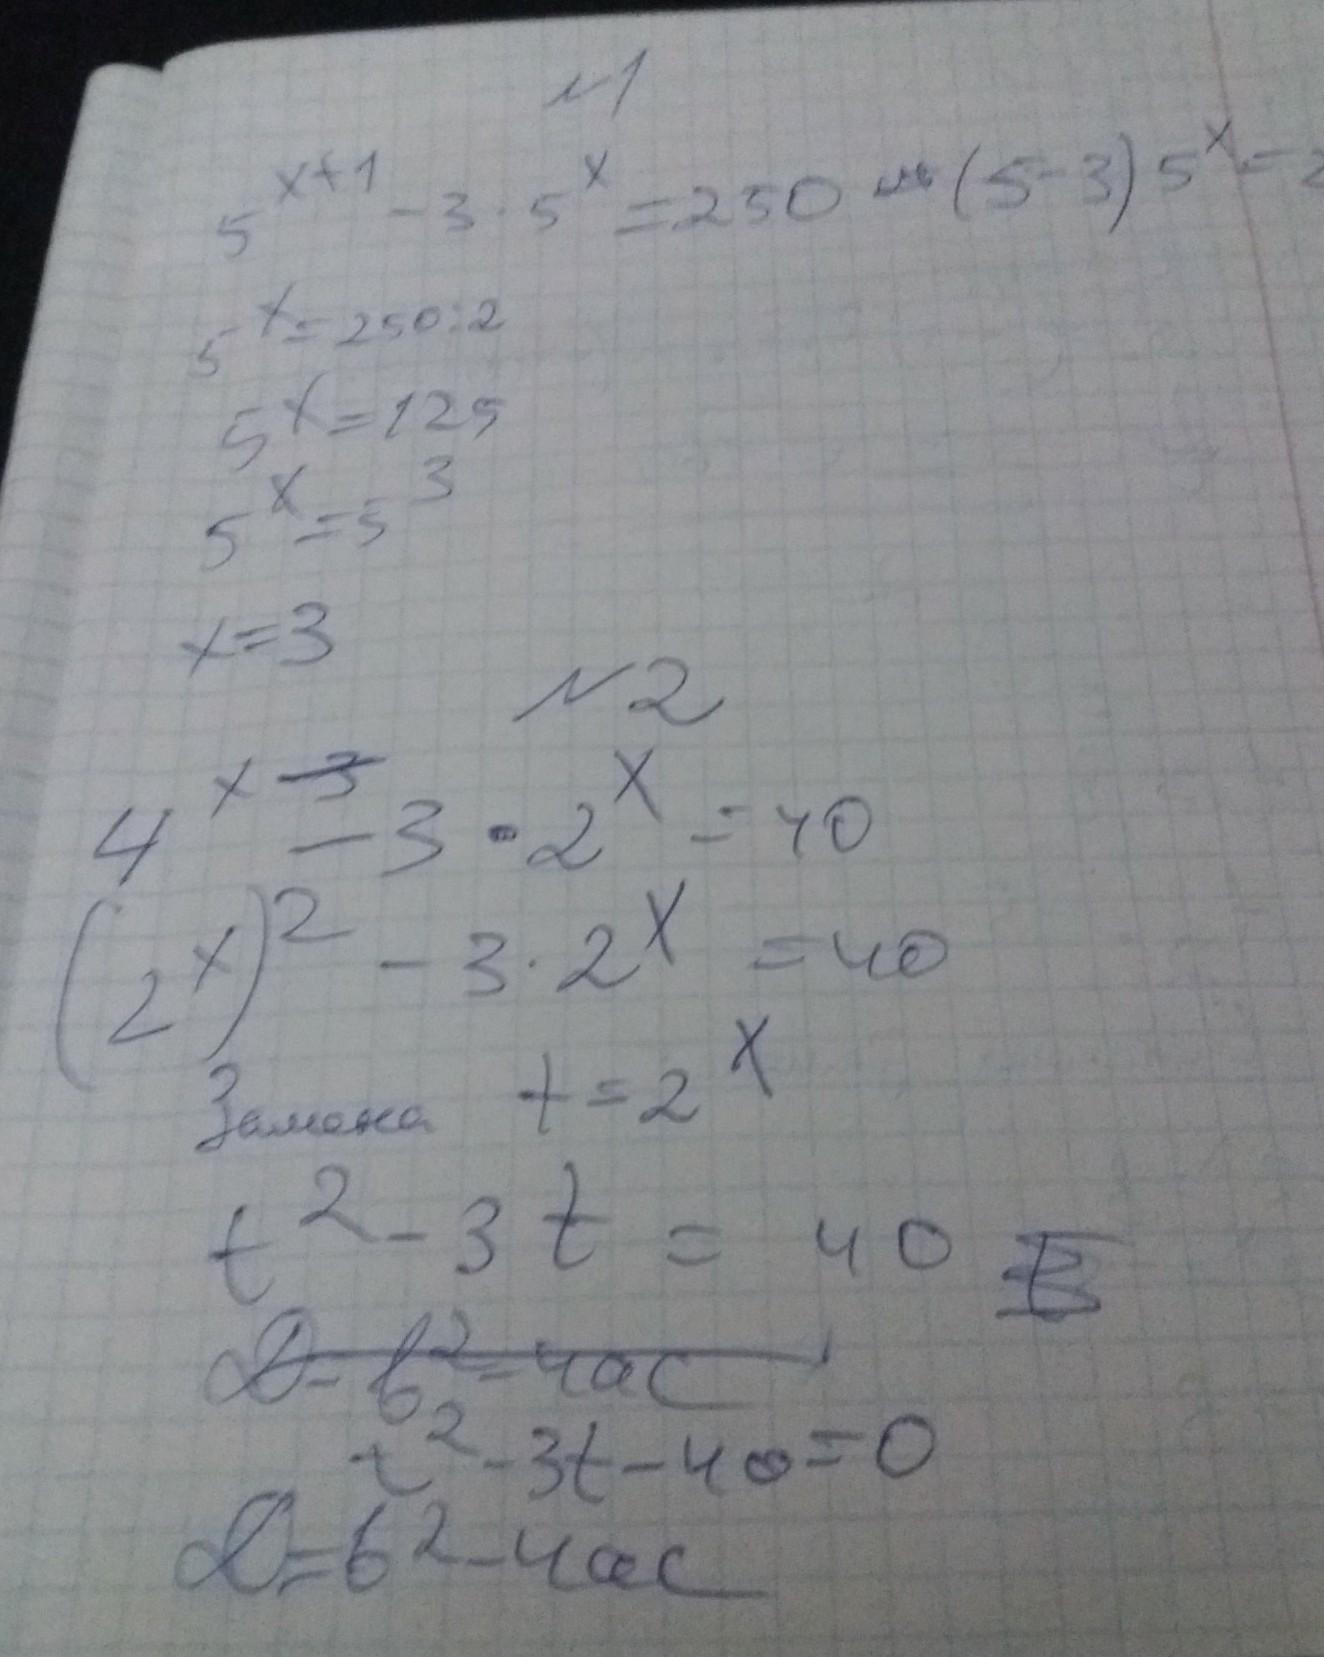 №1
5^{x+1} - 3 · 5^x = 250 (5-3) 5^x = 2
5^x = 250:2
5^x = 125
5^x = 5^3
x = 3
№2
4^x - 3 · 2^x = 40
(2^x)^2 - 3 · 2^x = 40
Замена t = 2^x
t^2 - 3t = 40
D = b^2 - 4ac
t^2 - 3t - 40 = 0
D = b^2 - 4ac